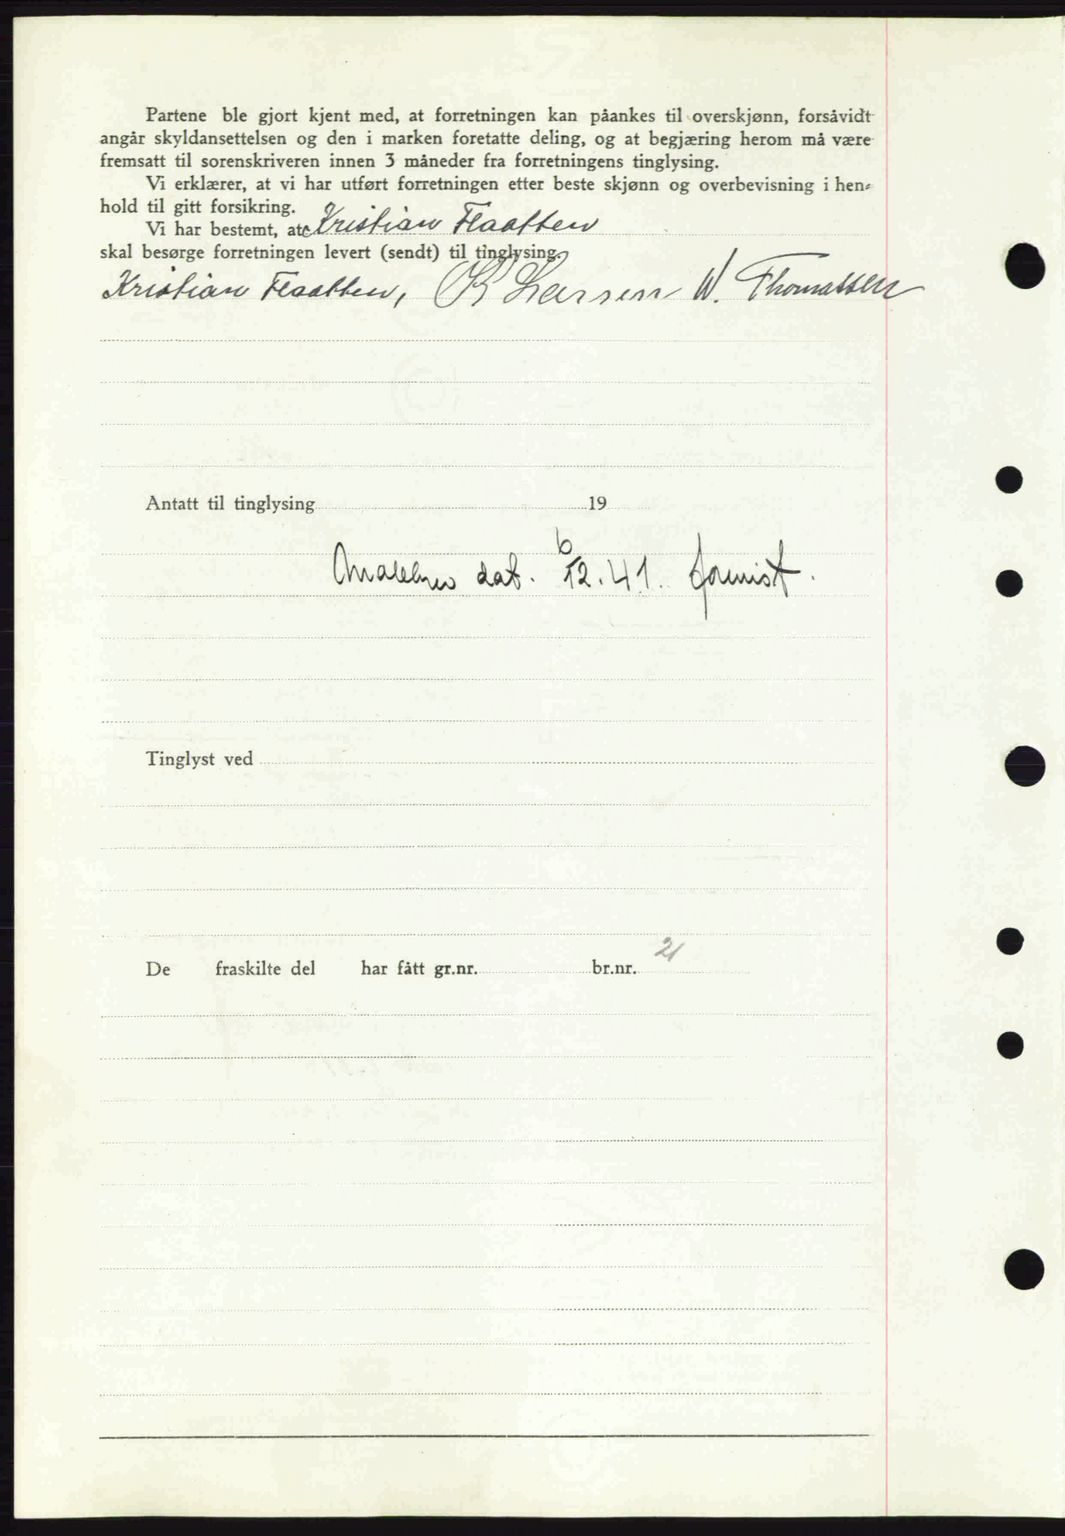 Partene ble gjort kjent med, at forretningen kan påankes til overskjønn, forsåvidt
angår skyldansettelsen og den i marken foretatte deling, og at begjæring herom må være
fremsatt til sorenskriveren innen 3 måneder fra forretningens tinglysing.
Vi erklærer, at vi har utført forretningen etter beste skjønn og overbevisning i hen-
hold til gitt forsikring.
Vi har bestemt, at Kristian Flaatten
skal besørge forretningen levert (sendt) til tinglysing.
Kristian Flaatten, K Larsen W. Thomassen
Antatt til tinglysing 19
dat. 6/12.41.
Tinglyst ved
De fraskilte del har fått gr.nr. br.nr. 21